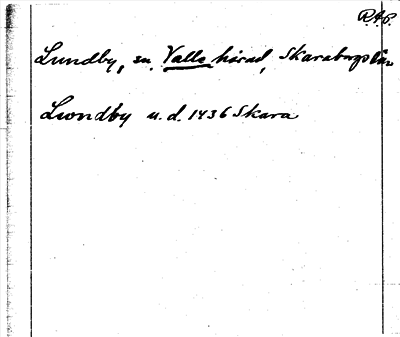 R.A.P.
Lundby, sn, Valle härad, Skaraborgs län
Lwndby u.d. 1436 Skara